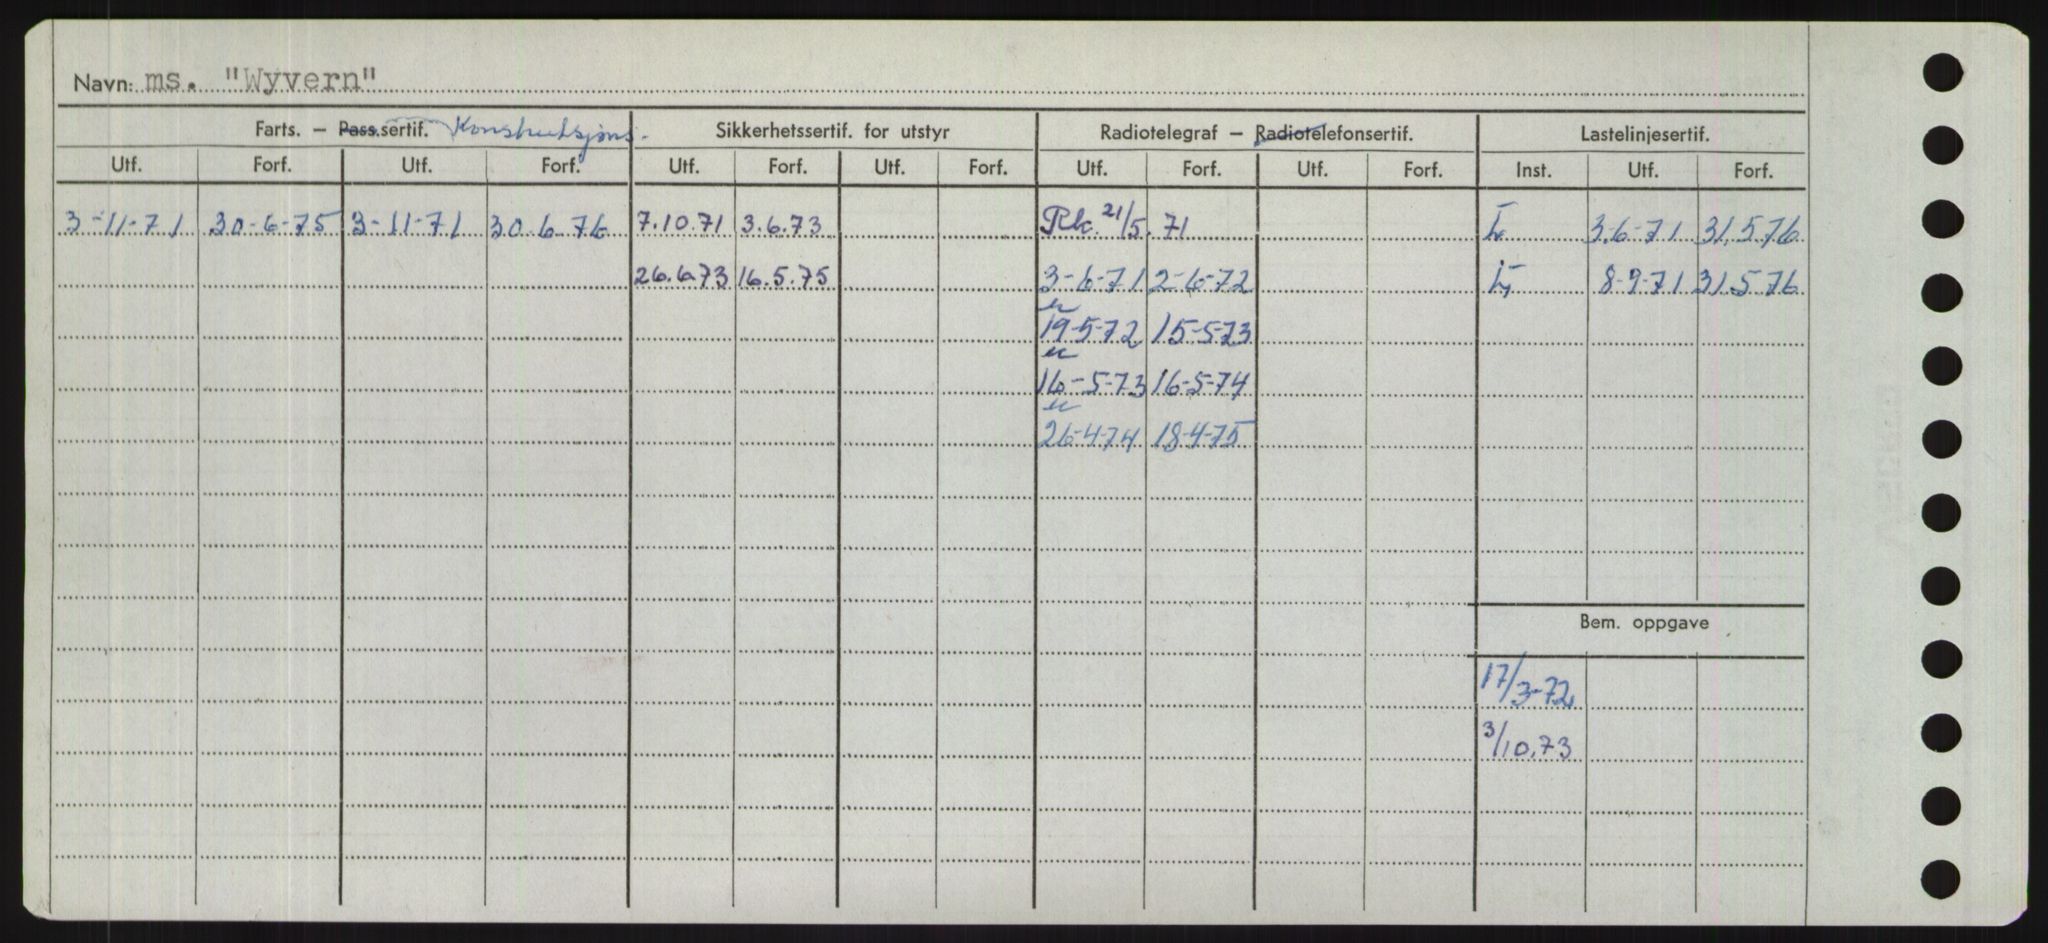 Navn: ms. "Wyvern"
Farts. – Pass.sertif. Konstruksjons- Sikkerhetssertif. for utstyr Radiotelegraf – Radiotelefonsertif. Lastelinjesertif.
Utf. Forf. Utf. Forf. Utf. Forf. Utf. Forf. Utf. Forf. Utf. Forf. Inst. Utf. Forf.
3-11-71 30-6-75 3-11-71 30.6-76 7.10.71 3.6.73 Rk. 21/5. 71 3.6-71 31.5.76
26.6.73 16.5.75 3-6-71 2-6-72 8-9-71 31.5-76
19-5-72 15-5-73
16-5-73 16-5-74
26-4-74 18-4-75
Bem. oppgave
17/3-72
3/10.73